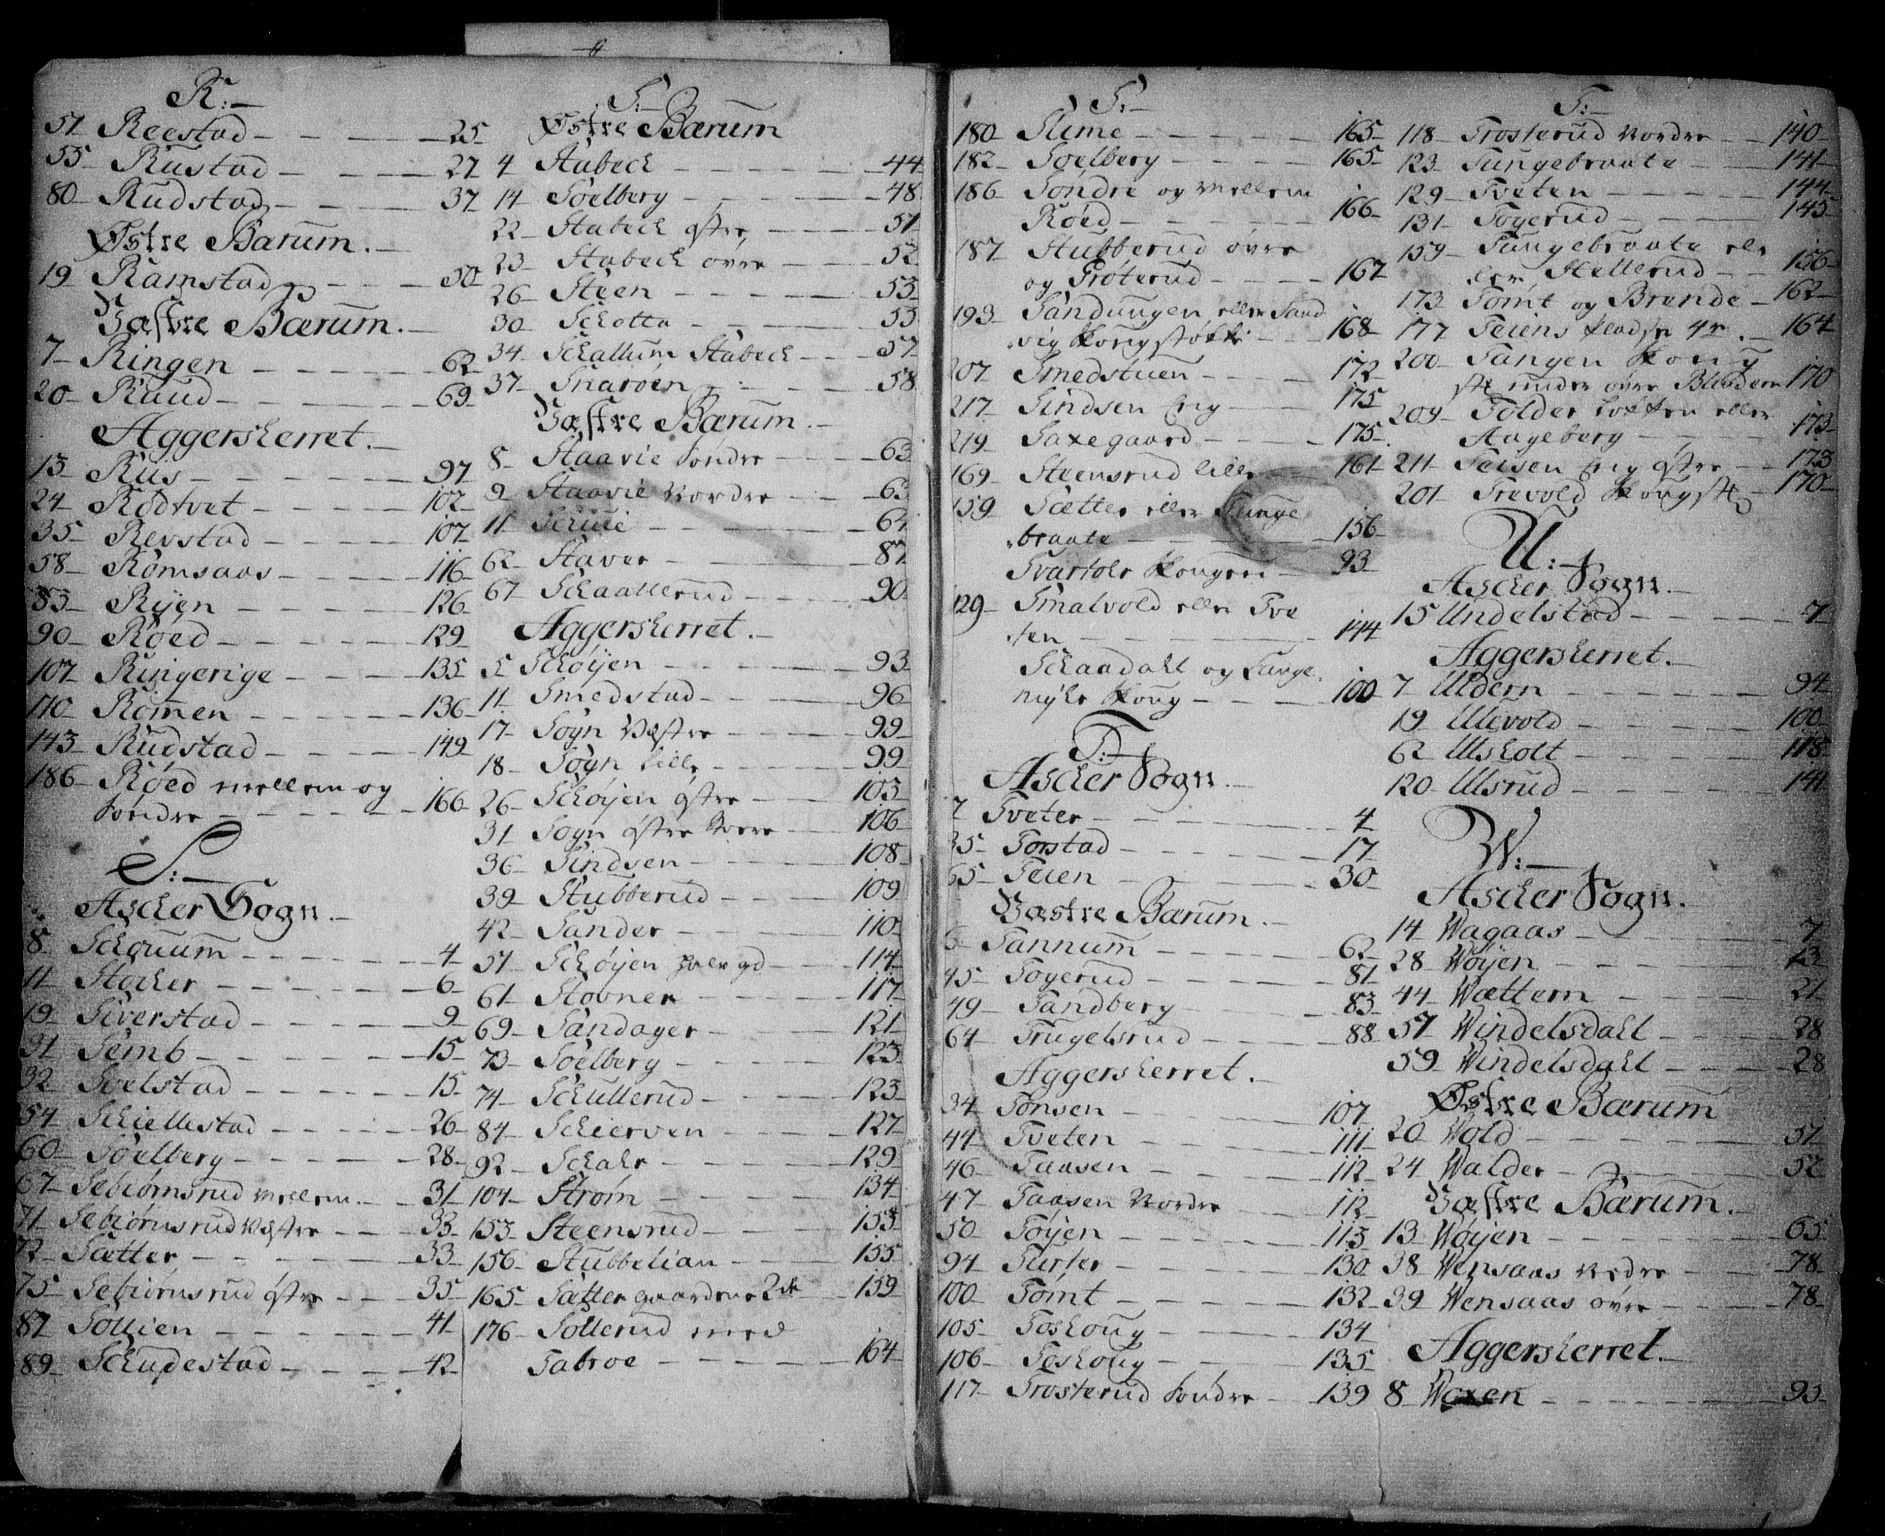 R:
51 Reestad 25
55 Rustad 27
80 Rudstad 37
Østre Bærum.
19 Ramstad 50
Væstre Bærum.
7 Ringen 62
20 Ruud 69
Aggersherret.
13 Riis 97
24 Rödtvet 102
35 Revstad 107
58 Römsaas 116
83 Rÿen 126
90 Röed 129
107 Ringerige 135
110 Römen 136
143 Rudstad 149
186 Röed mellem og
söndre 166
S:
Ascher Sogn.
8 Schouum 4
11 Stocker 6
19 Siverstad 9
31 Semb 15
32 Svelstad 15
54 Schiellestad 26
60 Söelberg 28
67 Sebiörnsrud mellem 31
71 Sebiörnsrud Væstre 33
72 Sætter 33
75 Sebiörnsrud östre 35
87 Sollien 41
89 Schudestad 42
S:
Østre Bærum
4 Stabech 44
14 Söelberg 48
22 Stabech östre 51
23 Stabech övre 52
26 Steen 53
30 Schotta 55
34 Schallum Stabech 57
37 Snaröen 58
Væstre Bærum.
8 Staavie söndre 63
9 Staavie Nordre 63
11 Schuie 64
62 Staver 87
67 Schaallerud 90
Aggersherret.
5 Schöÿen 93
11 Smedstad 96
17 Sogn Væstre 99
18 Sogn lille 99
26 Schöÿen östre 103
31 Sogn östre store 106
36 Sindsen 108
39 Stubberud 109
42 Sander 110
51 Schöÿen halv gd 114
61 Stovner 117
69 Sandager 121
73 Söelberg 123
74 Schullerud 123
84 Schierven 127
92 Schahr 129
104 Ström 134
153 Steensrud 153
156 Stubbelian 155
165 Sætter gaardene 2de 159
176 Sollerud med
Sabroe 164
S:
180 Slime 165
182 Soelberg 165
186 Söndre og mellem
Röed 166
187 Stubberud övre
og Pröterud 167
193 Sandungen eller Sand
vig Kongstökke 168
207 Smedstuen 172
217 Sindsen Eng 175
219 Saxegaard 175
169 Steensrud lille 161
159 Sætter eller Tunge
braate 156
Svartohr Kougen 93
129 Smalvold eller Tve
ten 144
Schaadahl og Lange
myhr Koug 100
T:
Ascher Sogn.
7 Tveter 4
35 Torstad 17
65 Teien 30
Væstre Bærum.
6 Tannum 62
45 Toyerud 81
49 Tandberg 83
64 Trugelsrud 88
Aggersherret.
34 Tonsen 107
44 Tveten 111
46 Taasen 112
47 Taasen Nordre 112
50 Töyen 113
94 Turter 130
100 Tömt 132
105 Toskoug 134
106 Toskoug 135
117 Trosterud söndre 139
T:
118 Trosterud Nordre 140
123 Tungebraate 141
129 Tveten 144
131 Toyerud 145
159 Tungebraate ell
er Stellerud 156
173 Tömt og Brende 162
177 Teiens pladse 4re 164
200 Tangen Kong
st under övre Blindern 170
209 Tolder lökken eller
Aageberg 173
211 Teisen Eng östre 173
201 Trevold Kongst 170
U:
Ascher Sogn.
15 Undelstad 7
Aggersherret.
7 Uldern 94
19 Ulivold 100
62 Ulsholt 118
120 Ulsrud 141
W:
Ascher Sogn.
14 Wagaas 7
28 Wöyen 13
44 Wættern 21
57 Windelsdahl 28
59 Windelsdahl 28
Østre Bærum
20 Wold 51
24 Walder 52
Væstre Bærum.
13 Wöyen 65
38 Wensaas Nedre 78
39 Wensaas övre 78
Aggersherret.
8 Woxen 95